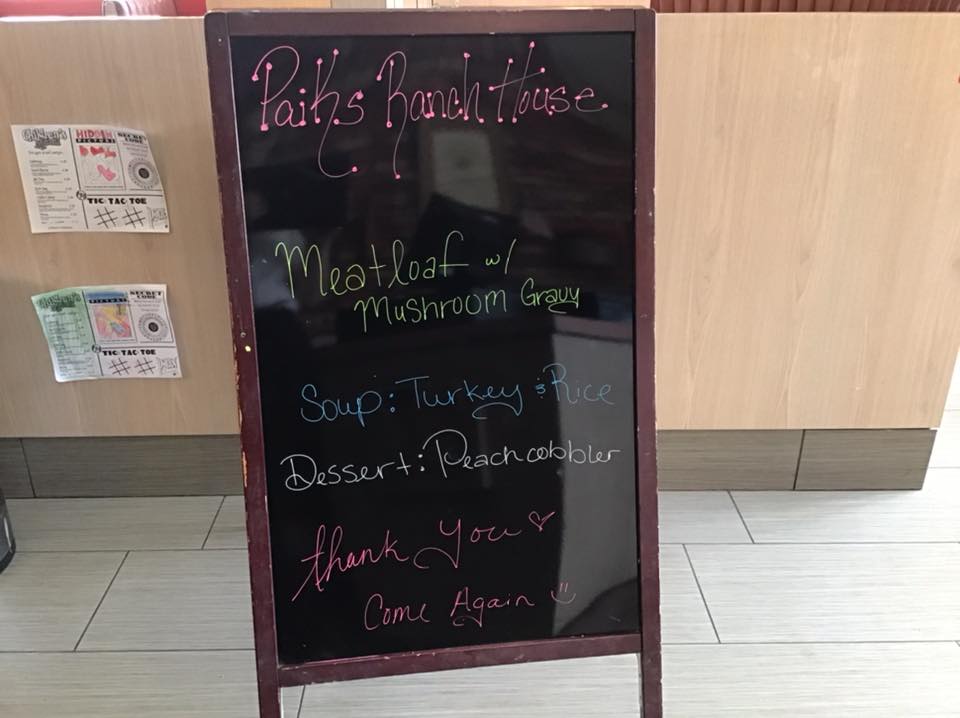 Paiks Ranch House
Meatloaf w/
Mushroom Gravy
Soup: Turkey & Rice
Dessert: Peach cobbler
Thank You
Come Again
Children's
HIDDEN
PICTURE
SECRET
CODE
TIC TAC TOE
PICTURE
SECRET
CODE
TIC TAC TOE